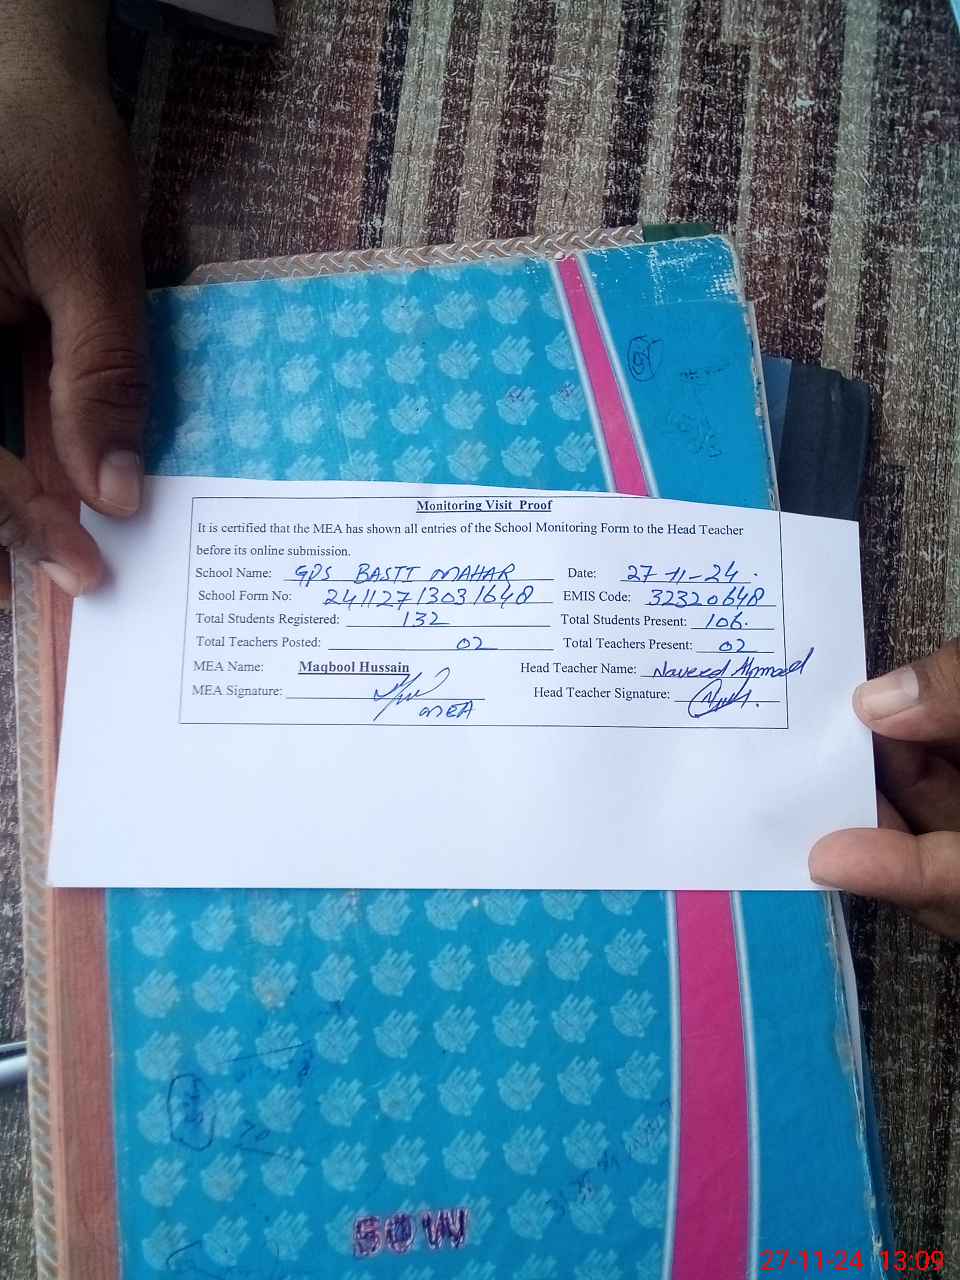 Monitoring Visit Proof
It is certified that the MEA has shown all entries of the School Monitoring Form to the Head Teacher
before its online submission.
School Name: GPS BASTI MAHAR Date: 27-11-24.
School Form No: 24112713031648 EMIS Code: 32320648
Total Students Registered: 132 Total Students Present: 106.
Total Teachers Posted: 02 Total Teachers Present: 02
MEA Name: Maqbool Hussain Head Teacher Name: Naveed Ahmad
MEA Signature: Head Teacher Signature:
MEA
50W
27-11-24 13:09